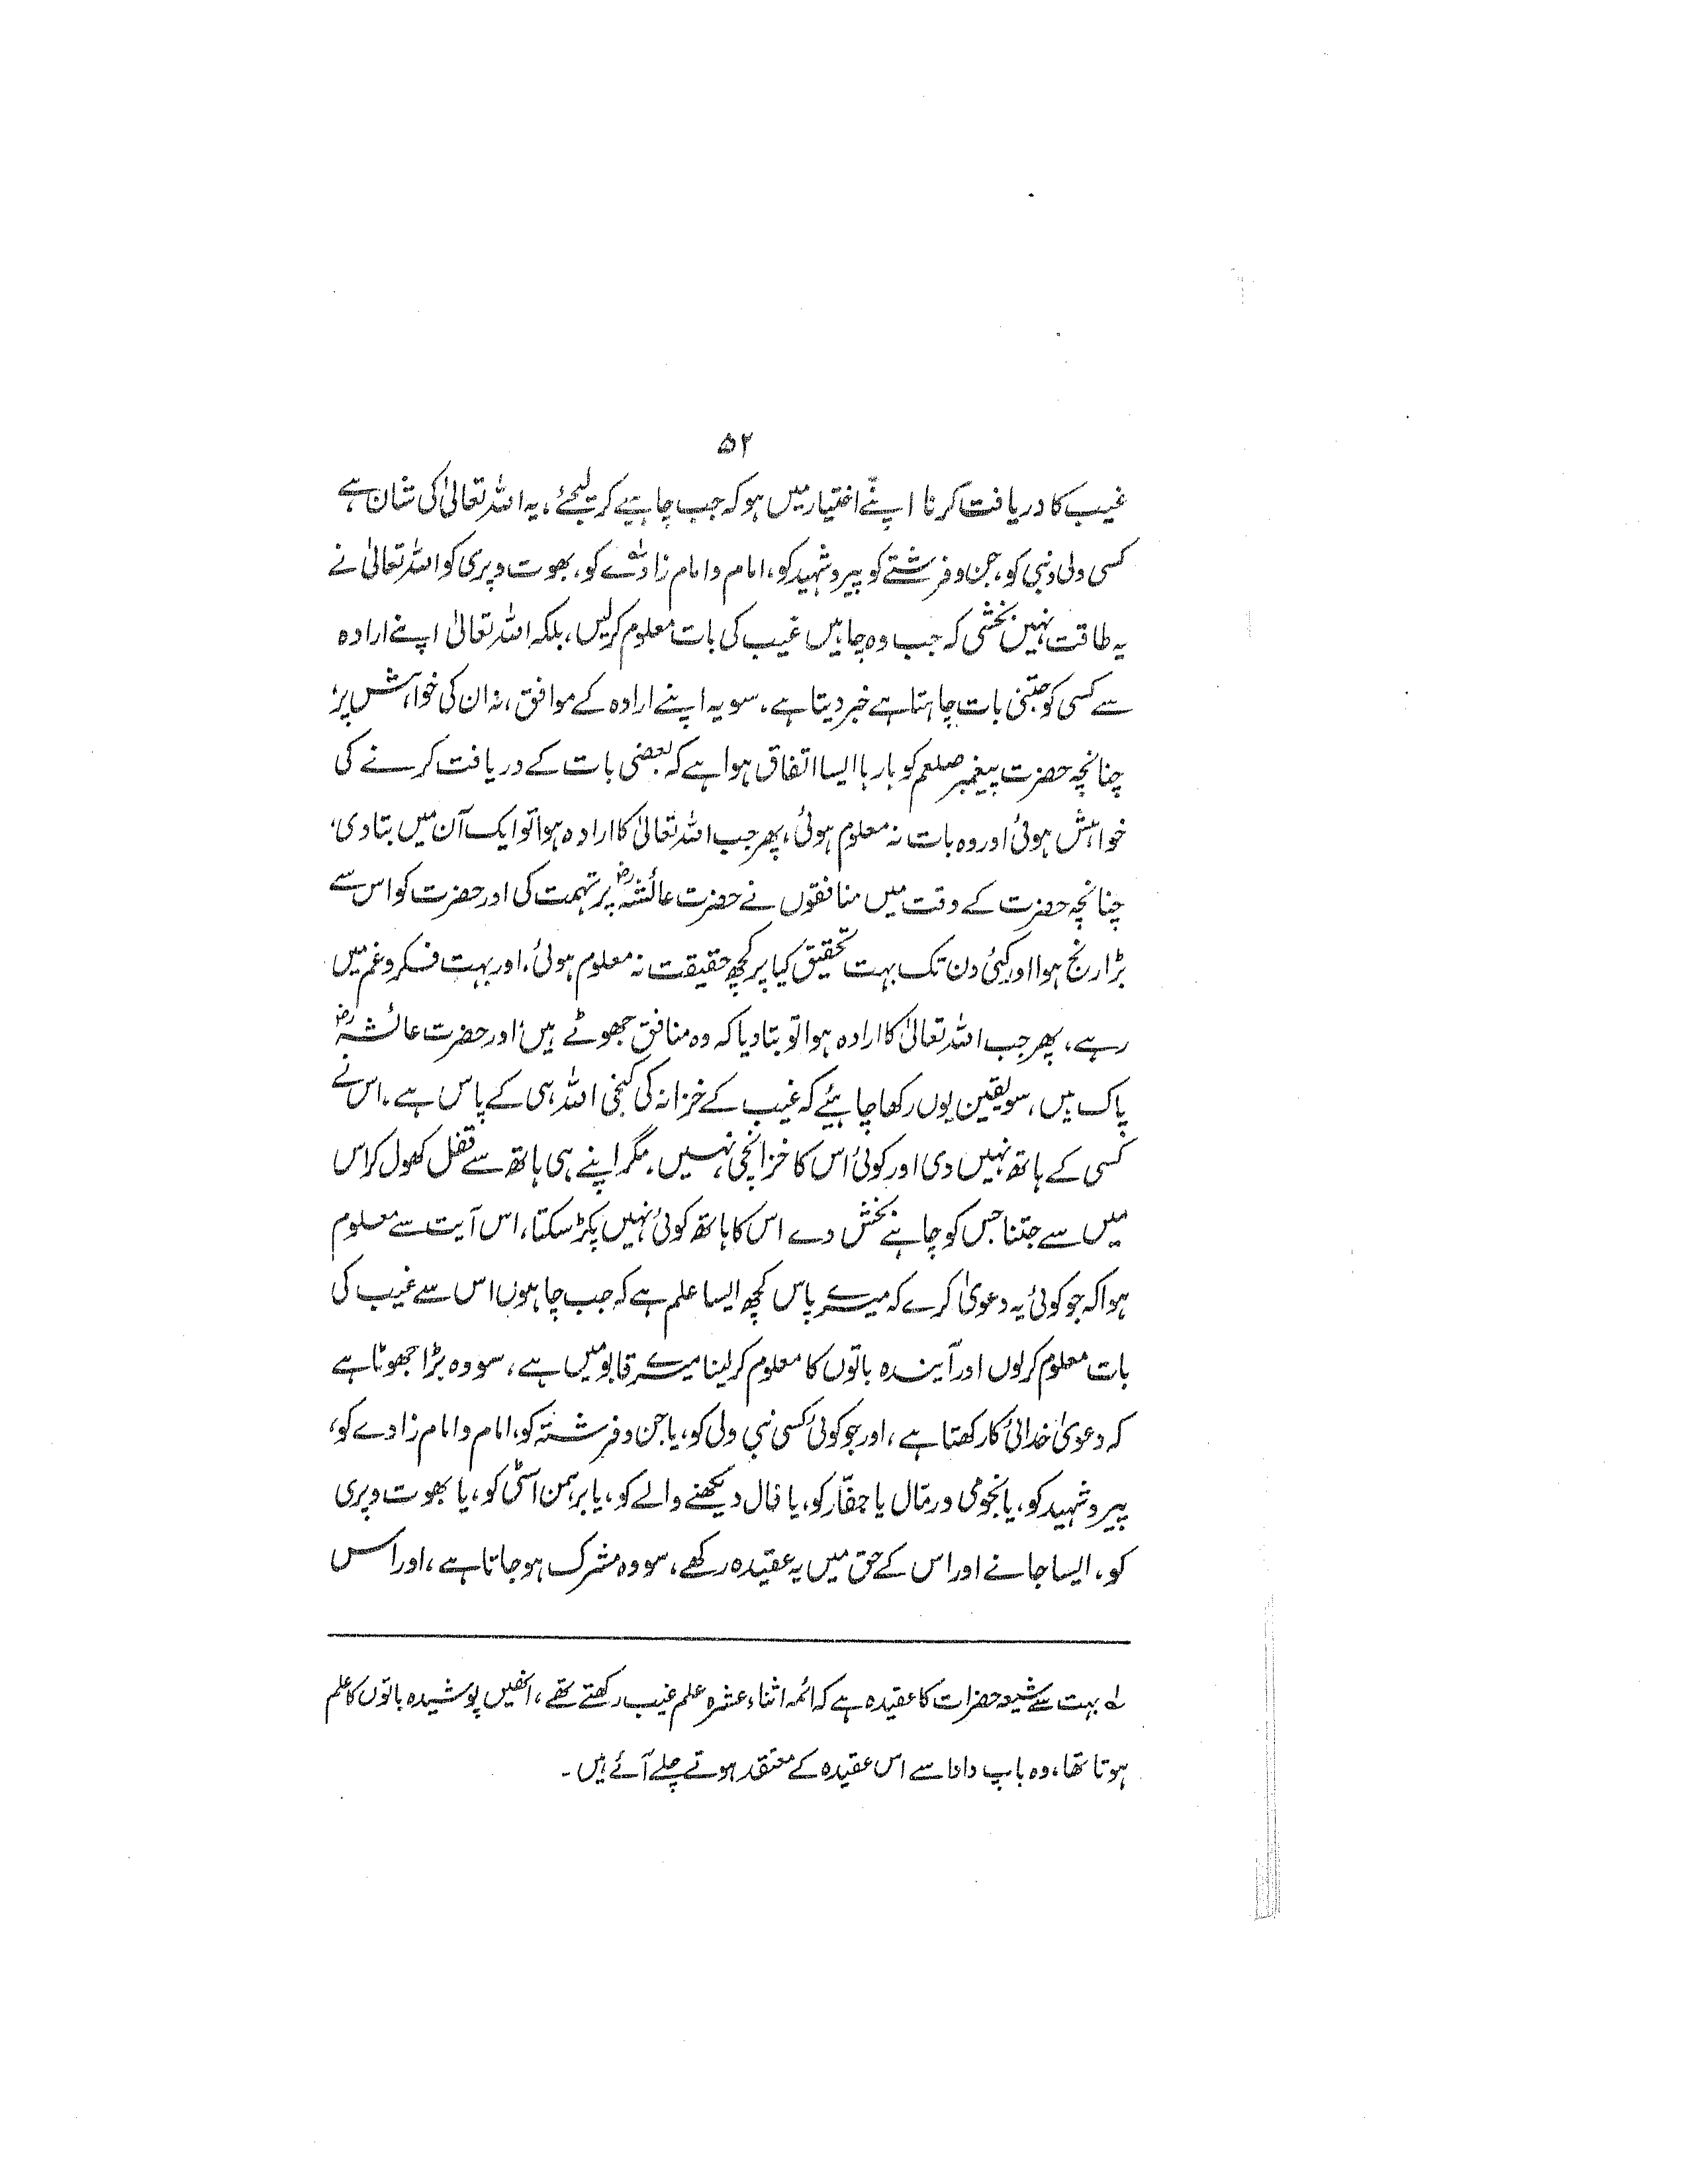 ۵۲
غیب کا دریافت کرنا اپنے اختیار میں ہو کہ جب چاہیے کر لیجئے، یہ اللہ تعالیٰ کی شان ہے
کسی ولی و نبی کو، جن و فرشتے کو پیر و شہید کو، امام و امام زادے کو، بھوت و پری کو اللہ تعالیٰ نے
یہ طاقت نہیں بخشی کہ جب وہ چاہیں غیب کی بات معلوم کرلیں، بلکہ اللہ تعالیٰ اپنے ارادہ
سے کسی کو جتنی بات چاہتا ہے خبر دیتا ہے، سو یہ اپنے ارادہ کے موافق، نہ ان کی خواہش پر،
چنانچہ حضرت پیغمبر صلعم کو بارہا ایسا اتفاق ہوا ہے کہ بعضی بات کے دریافت کرنے کی
خواہش ہوئی اور وہ بات نہ معلوم ہوئی، پھر جب اللہ تعالیٰ کا ارادہ ہوا تو ایک آن میں بتا دی،
چنانچہ حضرت کے وقت میں منافقوں نے حضرت عائشہؓ پر تہمت کی اور حضرت کو اس سے
بڑا رنج ہوا اور کئی دن تک بہت تحقیق کیا پر کچھ حقیقت نہ معلوم ہوئی، اور بہت فکر و غم میں
رہے، پھر جب اللہ تعالیٰ کا ارادہ ہوا تو بتا دیا کہ وہ منافق جھوٹے ہیں، اور حضرت عائشہؓ
پاک ہیں، سو یقین یوں رکھا چاہئیے کہ غیب کے خزانہ کی کنجی اللہ ہی کے پاس ہے، اس نے
کسی کے ہاتھ نہیں دی اور کوئی اس کا خزانچی نہیں، مگر اپنے ہی ہاتھ سے قفل کھول کر اس
میں سے جتنا جس کو چاہے بخش دے اس کا ہاتھ کوئی نہیں پکڑ سکتا، اس آیت سے معلوم
ہوا کہ جو کوئی یہ دعویٰ کرے کہ میرے پاس کچھ ایسا علم ہے کہ جب چاہوں اس سے غیب کی
بات معلوم کرلوں اور آیندہ باتوں کا معلوم کرلینا میرے قابو میں ہے، سو وہ بڑا جھوٹا ہے
کہ دعویٰ خدائی کا رکھتا ہے، اور جو کوئی کسی نبی ولی کو، یا جن و فرشتہ کو، امام و امام زادے کو،
پیر و شہید کو، یا نجومی و رمّال یا جفّار کو، یا فال دیکھنے والے کو، یا برہمن اسٹی کو، یا بھوت و پری
کو، ایسا جانے اور اس کے حق میں یہ عقیدہ رکھے، سو وہ مشرک ہو جاتا ہے، اور اس
لہ بہت سے شیعہ حضرات کا عقیدہ ہے کہ ائمہ اثناء عشرہ علم غیب رکھتے تھے، انھیں پوشیدہ باتوں کا علم
ہوتا تھا، وہ باپ دادا سے اس عقیدہ کے معتقد ہوتے چلے آئے ہیں۔